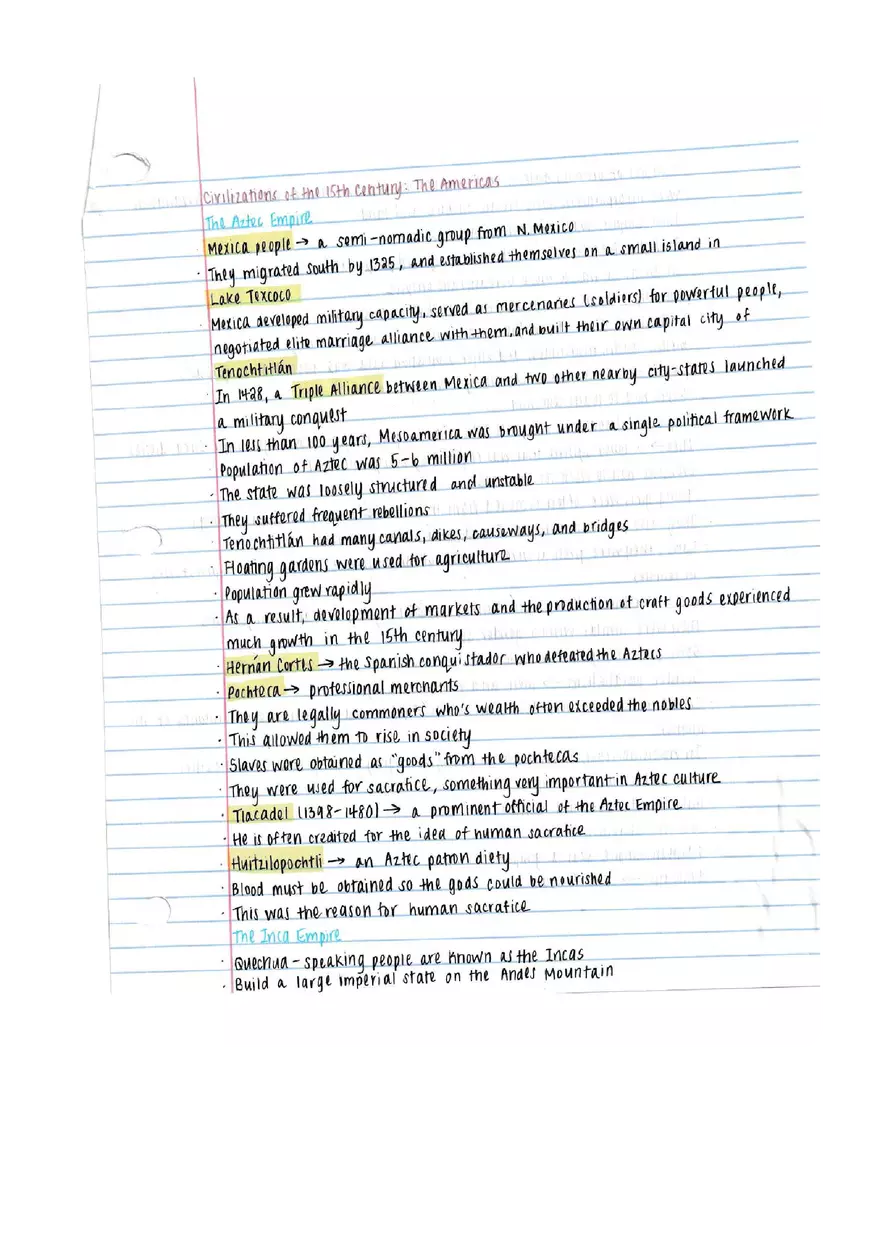 Civilizations of the 15th Century: The Americas
The Aztec Empire
· Mexica people → a semi-nomadic group from N. Mexico
· They migrated south by 1325, and established themselves on a small island in
Lake Texcoco
· Mexica developed military capacity, served as mercenaries (soldiers) for powerful people,
negotiated elite marriage alliance with them, and built their own capital city of
Tenochtitlán
· In 1428, a Triple Alliance between Mexica and two other nearby city-states launched
a military conquest
· In less than 100 years, Mesoamerica was brought under a single political framework
· Population of Aztec was 5-6 million
· The state was loosely structured and unstable
· They suffered frequent rebellions
· Tenochtitlán had many canals, dikes, causeways, and bridges
· Floating gardens were used for agriculture
· Population grew rapidly
· As a result, development of markets and the production of craft goods experienced
much growth in the 15th century
· Hernán Cortés → the Spanish conquistador who defeated the Aztecs
· Pochteca → professional merchants
· They are legally commoners who's wealth often exceeded the nobles
· This allowed them to rise in society
· Slaves were obtained as "goods" from the pochtecas
· They were used for sacrafice, something very important in Aztec culture
· Tlacadel (1398-1480) → a prominent official of the Aztec Empire
· He is often credited for the idea of human sacrafice
· Huitzilopochtli → an Aztec patron diety
· Blood must be obtained so the gods could be nourished
· This was the reason for human sacrafice
The Inca Empire
· Quechua-speaking people are known as the Incas
· Build a large imperial state on the Andes Mountain